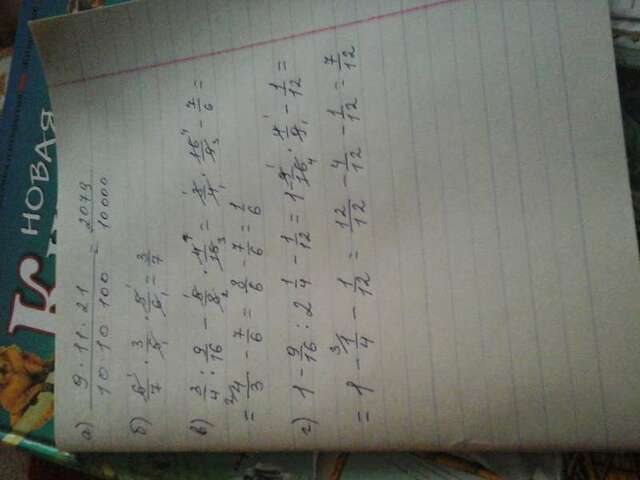 НОВАЯ
а) 9·11·21 / 10·10 100 = 2079 / 10000
б) 6/7 · 3/5 · 5/6 = 3/7
в) 3/4 : 9/16 - 5/8 · 4/15 = 3/4 · 16/9 - 7/6 =
= 4/3 - 7/6 = 8/6 - 7/6 = 1/6
г) 1 - 9/16 : 2 1/4 - 1/12 = 1 9/16 · 4/9 - 1/12 =
= 1 - 1/4 - 1/12 = 12/12 - 4/12 - 1/12 = 7/12